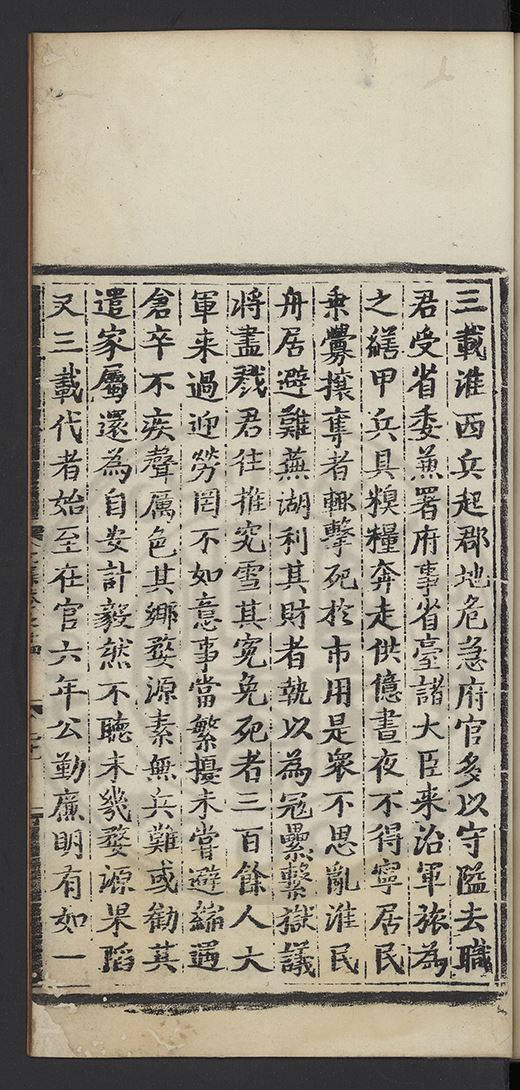 三載淮西兵起郡地危急府官多以守隘去職
君受省委兼署府事省臺諸大臣来治軍旅為
之繕甲兵具糗糧奔走供億晝夜不得寧居民
乘釁攘奪者輙擊死於市用是衆不思亂淮民
舟居避難蕪湖利其財者執以為冦纍繫獄議
将盡戮君往推究雪其寃免死者三百餘人大
軍来過迎勞罔不如意事當繁擾未嘗避縮遇
倉卒不疾聲厲色其鄉婺源素無兵難或勸其
遣家屬還為自安計毅然不聽未幾婺源果䧟
又三載代者始至在官六年公勤㢘明有如一